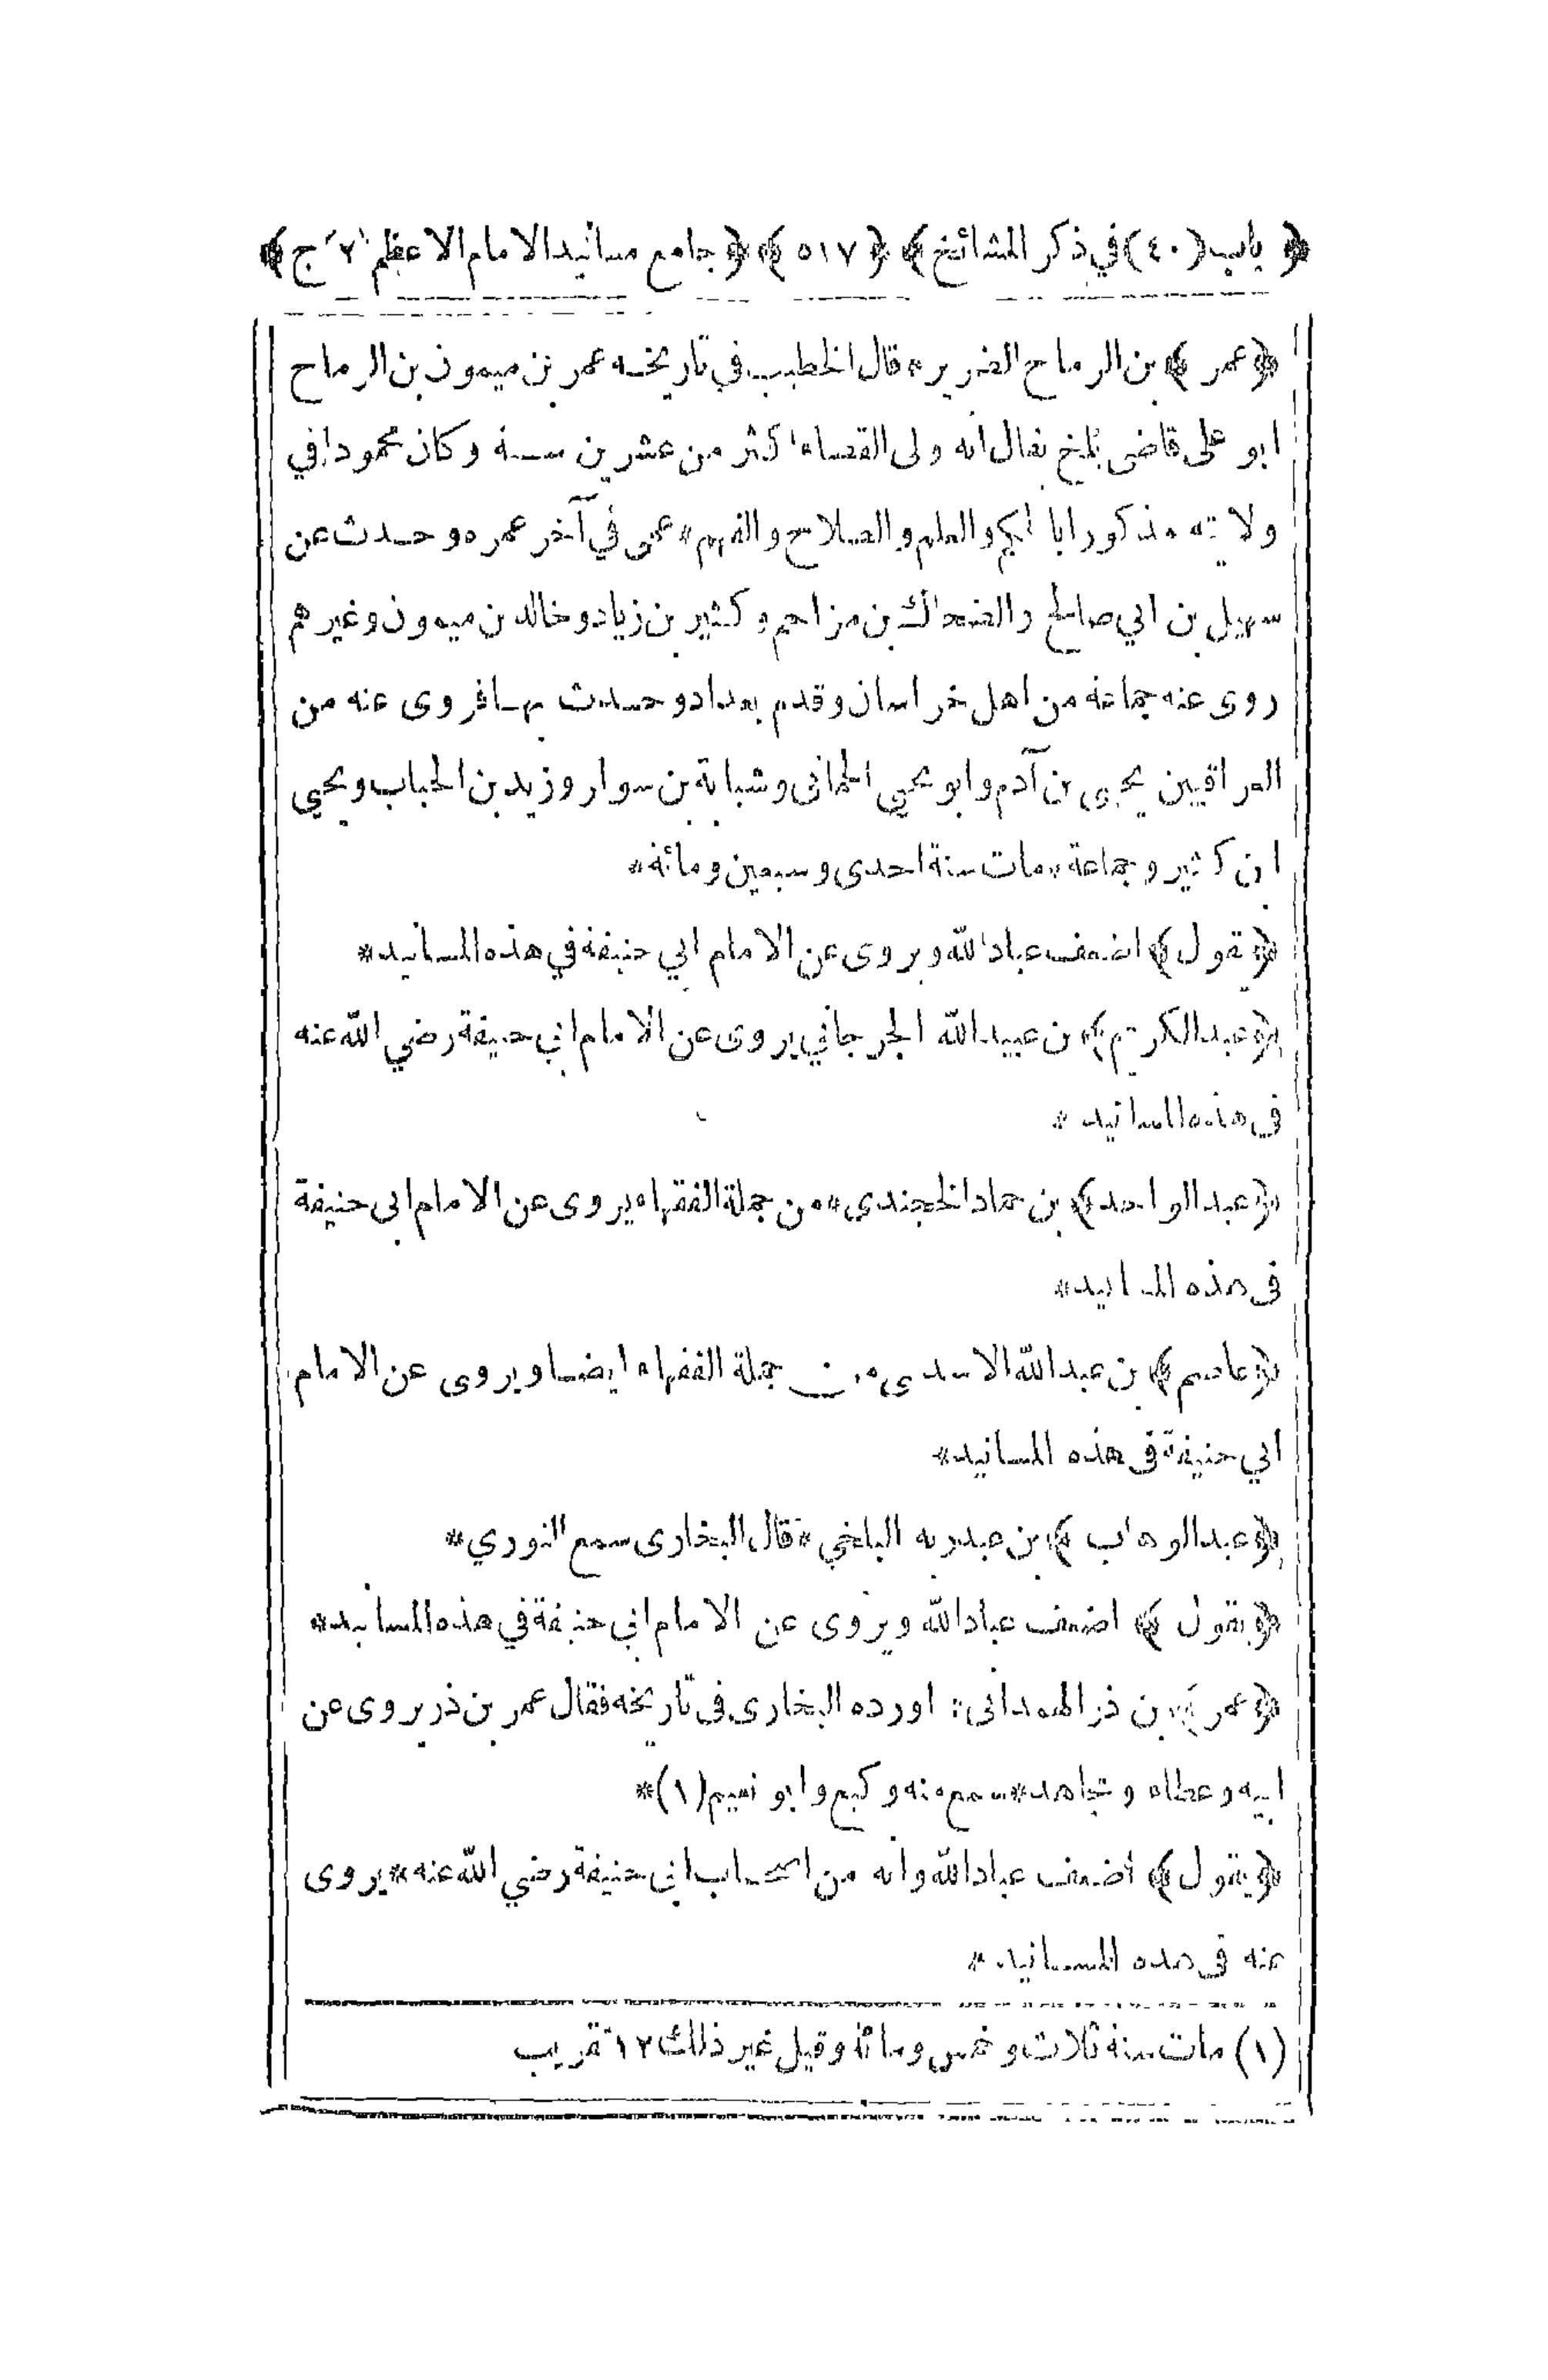 ﴿ باب (٤٠) في ذكر المشائخ ﴾ ﴿ ٥١٧ ﴾ ﴿ جامع مسانيد الامام الاعظم ٢ ج ﴾
﴿ عمر ﴾ بن الرماح الضرير * قال الخطيب في تاريخه عمر بن ميمون بن الرماح
ابو على قاضى بلخ يقال انه ولى القضاء اكثر من عشرين سنة وكان محمودا في
ولايته مذكورا بالحلم والعلم والصلاح والفهم * عمى في آخر عمره وحدث عن
سهيل بن ابي صالح والضحاك بن مزاحم وكثير بن زياد وخالد بن ميمون وغيرهم
روى عنه جماعة من اهل خراسان وقدم بغداد وحدث بها فروى عنه من
العراقيين يحيى بن آدم وابو يحيى الحمانى وشبابة بن سوار وزيد بن الحباب ويحيي
ابن كثير وجماعة * مات سنة احدى وسبعين ومائة *
﴿ يقول ﴾ اضعف عباد الله ويروى عن الامام ابي حنيفة في هذه المسانيد *
﴿ عبد الكريم ﴾ بن عبيد الله الجرجاني يروى عن الامام ابي حنيفة رضي الله عنه
في هذه المسانيد *
﴿ عبد الواحد ﴾ بن حماد الخجندي * من جملة الفقهاء يروى عن الامام ابى حنيفة
فى هذه المسانيد *
﴿ عاصم ﴾ بن عبد الله الاسدى من جملة الفقهاء ايضا ويروى عن الامام
ابي حنيفة فى هذه المسانيد *
﴿ عبد الوهاب ﴾ بن عبد ربه البلخي * قال البخارى سمع الثوري *
﴿ يقول ﴾ اضعف عباد الله ويروى عن الامام ابي حنيفة في هذه المسانيد *
﴿ عمر ﴾ بن ذر الهمدانى * اورده البخارى فى تاريخه فقال عمر بن ذر يروى عن
ابيه وعطاء ومجاهد * سمع منه وكيع وابو نعيم (١) *
﴿ يقول ﴾ أضعف عباد الله وانه من اصحاب ابى حنيفة رضي الله عنه * يروى
عنه فى هذه المسانيد *
(١) مات سنة ثلاث وخمس ومائة وقيل غير ذلك ١٢ تقريب